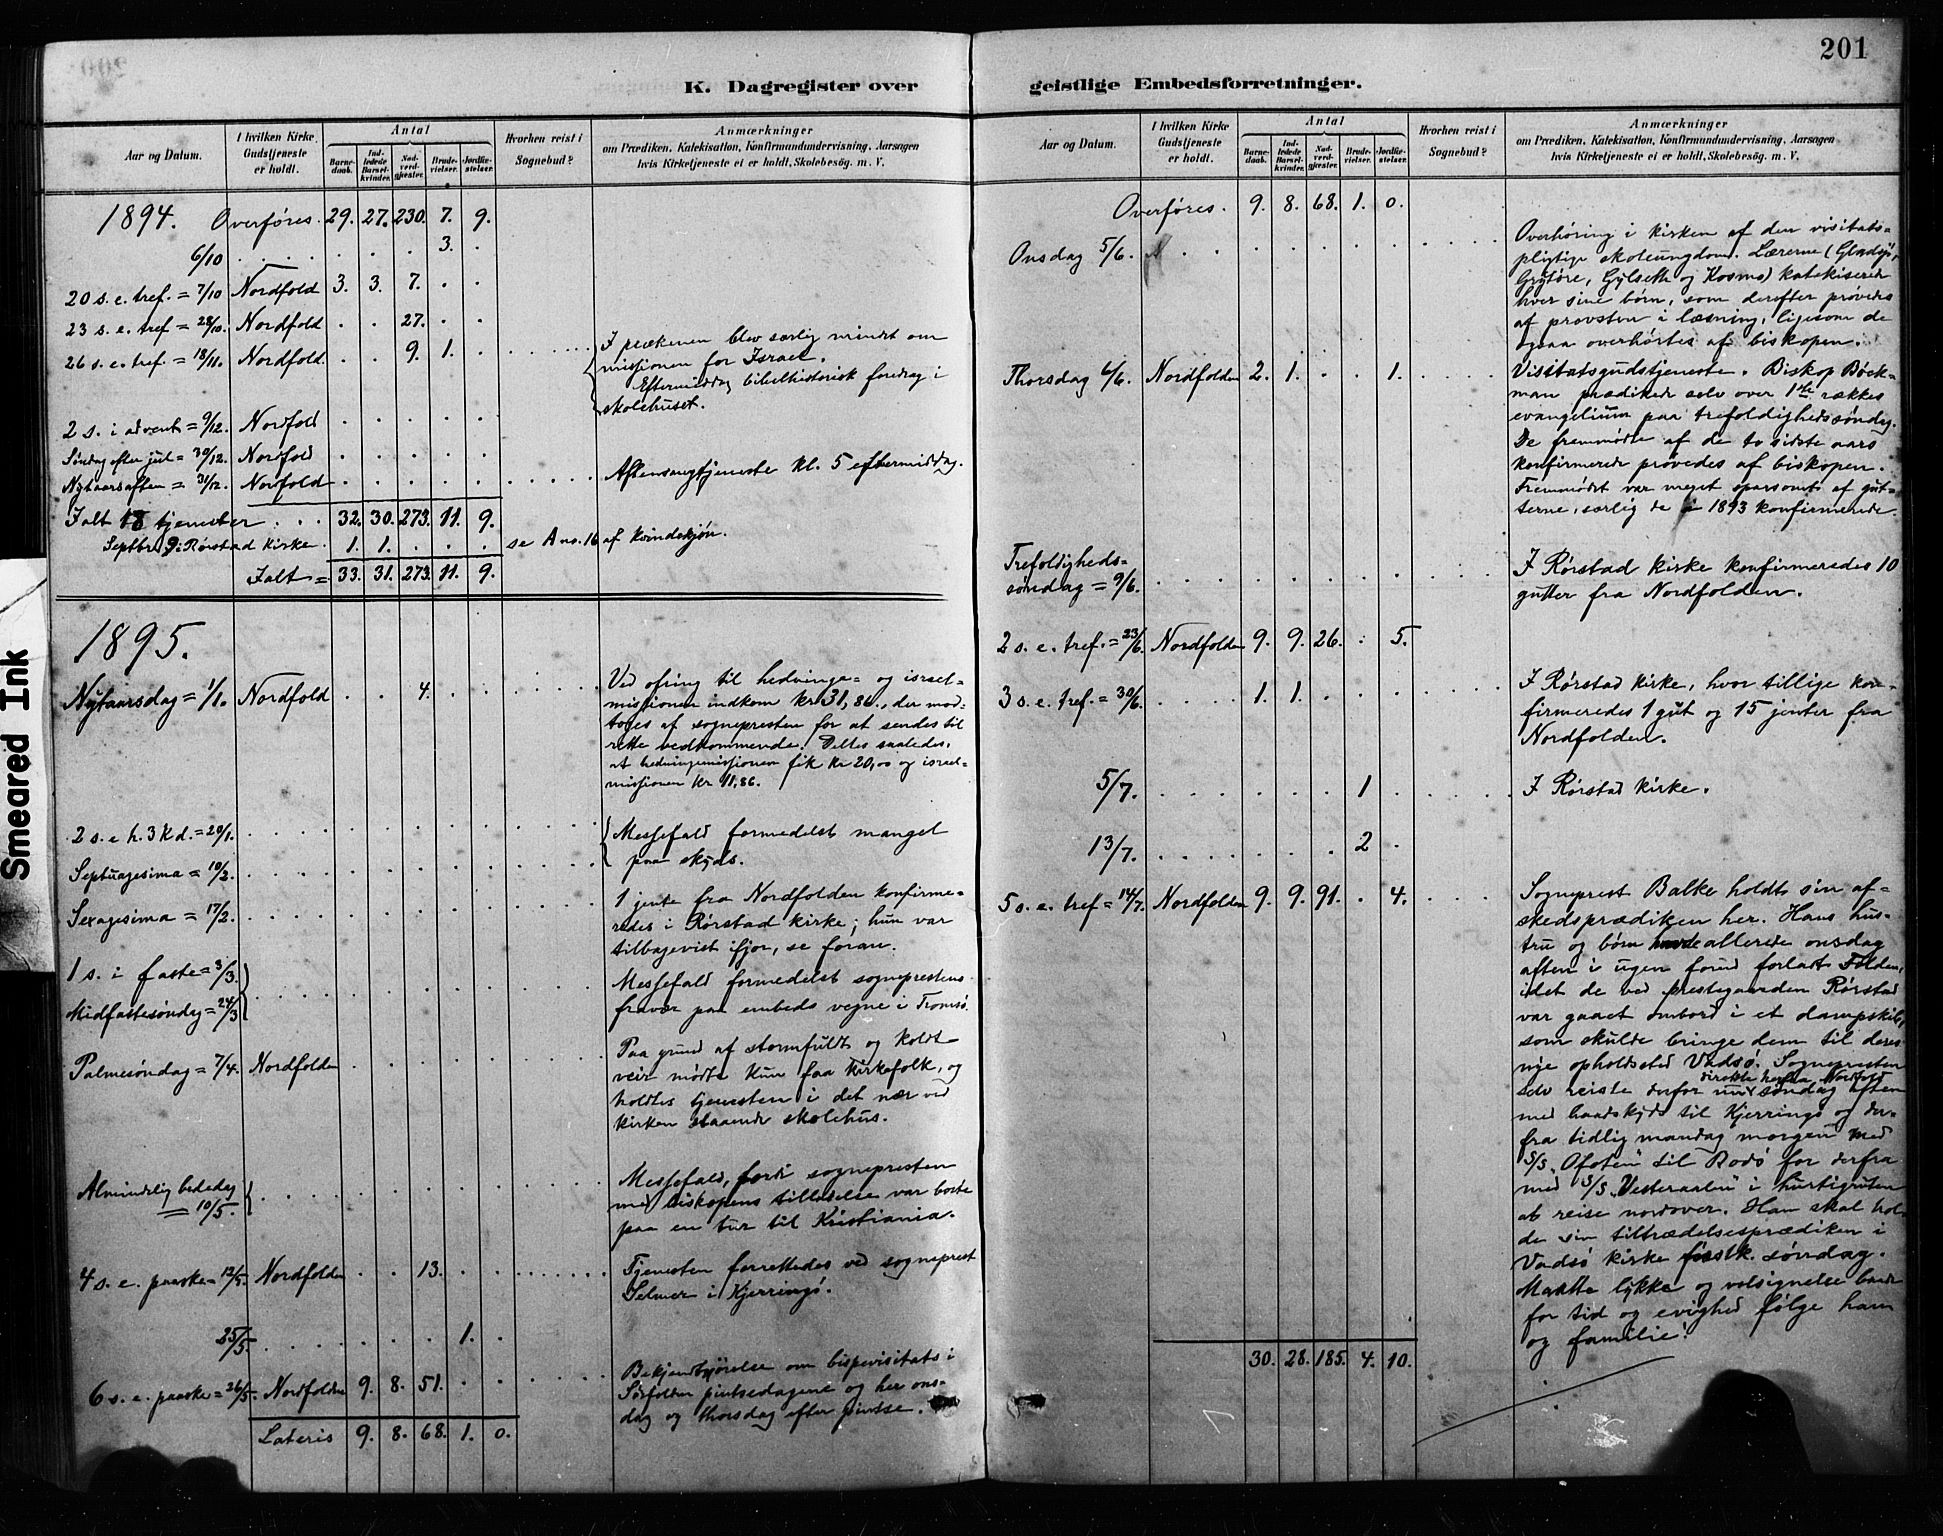 201
K. Dagregister over
geistlige Embedsforretninger.
Aar og Datum.
I hvilken Kirke Gudstjeneste er holdt.
Antal
Barnedaab.
Indledede Barselkvinder.
Nadverdgjæster.
Brudevielser.
Jordfæstelser.
Hvorhen reist i Sognebud?
Anmærkninger
om Prædiken, Katekisation, Konfirmandundervisning, Aarsagen
hvis Kirketjeneste ei er holdt, Skolebesøg. m. V.
1894. Overføres. 29. 27. 230. 7. 9.
6/10 . . . . 3. .
20 s. e. tref. = 7/10 Nordfold 3. 3. 7. . .
23 s. e. tref = 28/10. Nordfold . . 27. . .
26 s. e. tref. = 18/11. Nordfold. . . 9. 1. .
I prækenen blev særlig mindet om
missionen for Israel.
Eftermiddag bibelhistorisk foredrag i
skolehuset.
2 s. i advent = 9/12. Nordfold
Søndag efter jul = 30/12. Nordfold
Nytaarsaften = 31/12. Nordfold
Aftensangtjeneste kl. 5 eftermiddag.
Ialt 18 tjenester . . . 32. 30. 273. 11. 9.
Septbr 9 i Rørstad kirke. 1. 1. . . . se Ano. 16 af kvindekjøn.
Ialt = 33. 31. 273. 11. 9.
1895.
Nytaarsdag = 1/1. Nordfold . . 4. . .
Ved ofring til hedninge= og israel=
missionen indkom kr 31,86., der mod=
toges af sognepresten for at sendes til
rette vedkommende. Deltes saaledes,
at hedningemissionen fik kr 20,00 og israel=
missionen kr 11,86.
2 s. e h. 3 k d. = 20/1.
Septuagesima = 10/2.
Messefald formedelst mangel
paa skyds.
Sexagesima = 17/2.
1 jente fra Nordfolden konfirme=
redes i Rørstad kirke; hun var
tilbagevist ifjor, se foran.
1 s. i faste = 3/3.
Midfastesøndag = 24/3
Messefald formedelst sogneprestens
fravær paa embeds vegne i Tromsø.
Palmesøndag = 7/4. Nordfolden
Paa grund af stormfuldt og koldt
veir mødte kun faa kirkefolk, og
holdtes tjenesten i det nær ved
kirken staaende skolehus.
Almindelig bededag
= 10/5.
Messefald, fordi sognepresten
med biskopens tilladelse var borte
paa en tur til Kristiania.
4 s. e. paaske = 12/5. Nordfolden . . 13. . .
Tjenesten forrettedes ved sogneprest
Selmer i Kjerringø.
25/5. . . . . 1. .
6 s. e. paaske = 26/5. Nordfolden 9. 8. 51. . .
Bekjendtgjørelse om bispevisitats i
Sørfolden pintsedagene og her ons=
dag og thorsdag efter pintse.
Lateris 9. 8. 68. 1. 0.
Aar og Datum.
I hvilken Kirke Gudstjeneste er holdt.
Antal
Barnedaab.
Indledede Barselkvinder.
Nadverdgjester.
Brudevielser.
Jordfæstelser.
Hvorhen reist i Sognebud?
Anmærkninger
om Prædiken, Katekisation, Konfirmandundervisning, Aarsagen
hvis Kirketjeneste ei er holdt, Skolebesøg. m. V.
Overføres. 9. 8. 68. 1. 0.
Onsdag 5/6.
Overhøring i kirken af den visitats=
pligtige skoleungdom. Lærerne (Gladsjø,
Grytøre, Gylseth og Kosmo) katekiserede
hver sine børn, som derefter prøvedes
af provsten i læsning, ligesom de
ogsaa overhørtes af biskopen.
Thorsdag 6/6. Nordfolden 2. 1. . . 1.
Visitatsgudstjeneste. Biskop Bøck=
man prædikede selv over 1ste rækkes
evangelium paa trefoldighedssøndag.
De fremmødte af de to sidste aars
konfirmerede prøvedes af biskopen.
Fremmødet var meget sparsomt af gut=
terne, særlig de i 1893 konfirmerede.
Trefoldigheds=
søndag = 9/6.
I Rørstad kirke konfirmeredes 10
gutter fra Nordfolden.
2 s. e. tref. = 23/6. Nordfolden 9. 9. 26. . 5.
3 s. e. tref. = 30/6. 1. 1. . . .
I Rørstad kirke, hvor tillige kon=
firmeredes 1 gut og 15 jenter fra
Nordfolden.
5/7. 1 .
I Rørstad kirke.
13/7. 2 .
5 s. e. tref = 14/7. Nordfolden 9. 9. 91. . 4.
Sogneprest Balke holdt sin af=
skedsprædiken her. Hans hus=
tru og børn havde allerede onsdag
aften i ugen forud forladt Folden,
idet de ved prestegaarden Rørstad
var gaaet ombord i et dampskib,
som skulde bringe dem til deres
nye opholdssted Vadsø. Sognepresten
direkte herfra Nordfold
selv reiste derfor nu søndag aften
med baadskyds til Kjerringø og der=
fra tidlig mandag morgen med
S/S. "Ofoten" til Bodø for derfra
med S/S "Vesteraalen" i hurtigruten
at reise nordover. Han skal hol=
de sin tiltrædelsesprædiken i
Vadsø kirke førstk. søndag.
Maatte lykke og velsignelse baade
for tid og evighed følge ham
og familie!
30. 28. 185. 4. 10.
Smeared Ink